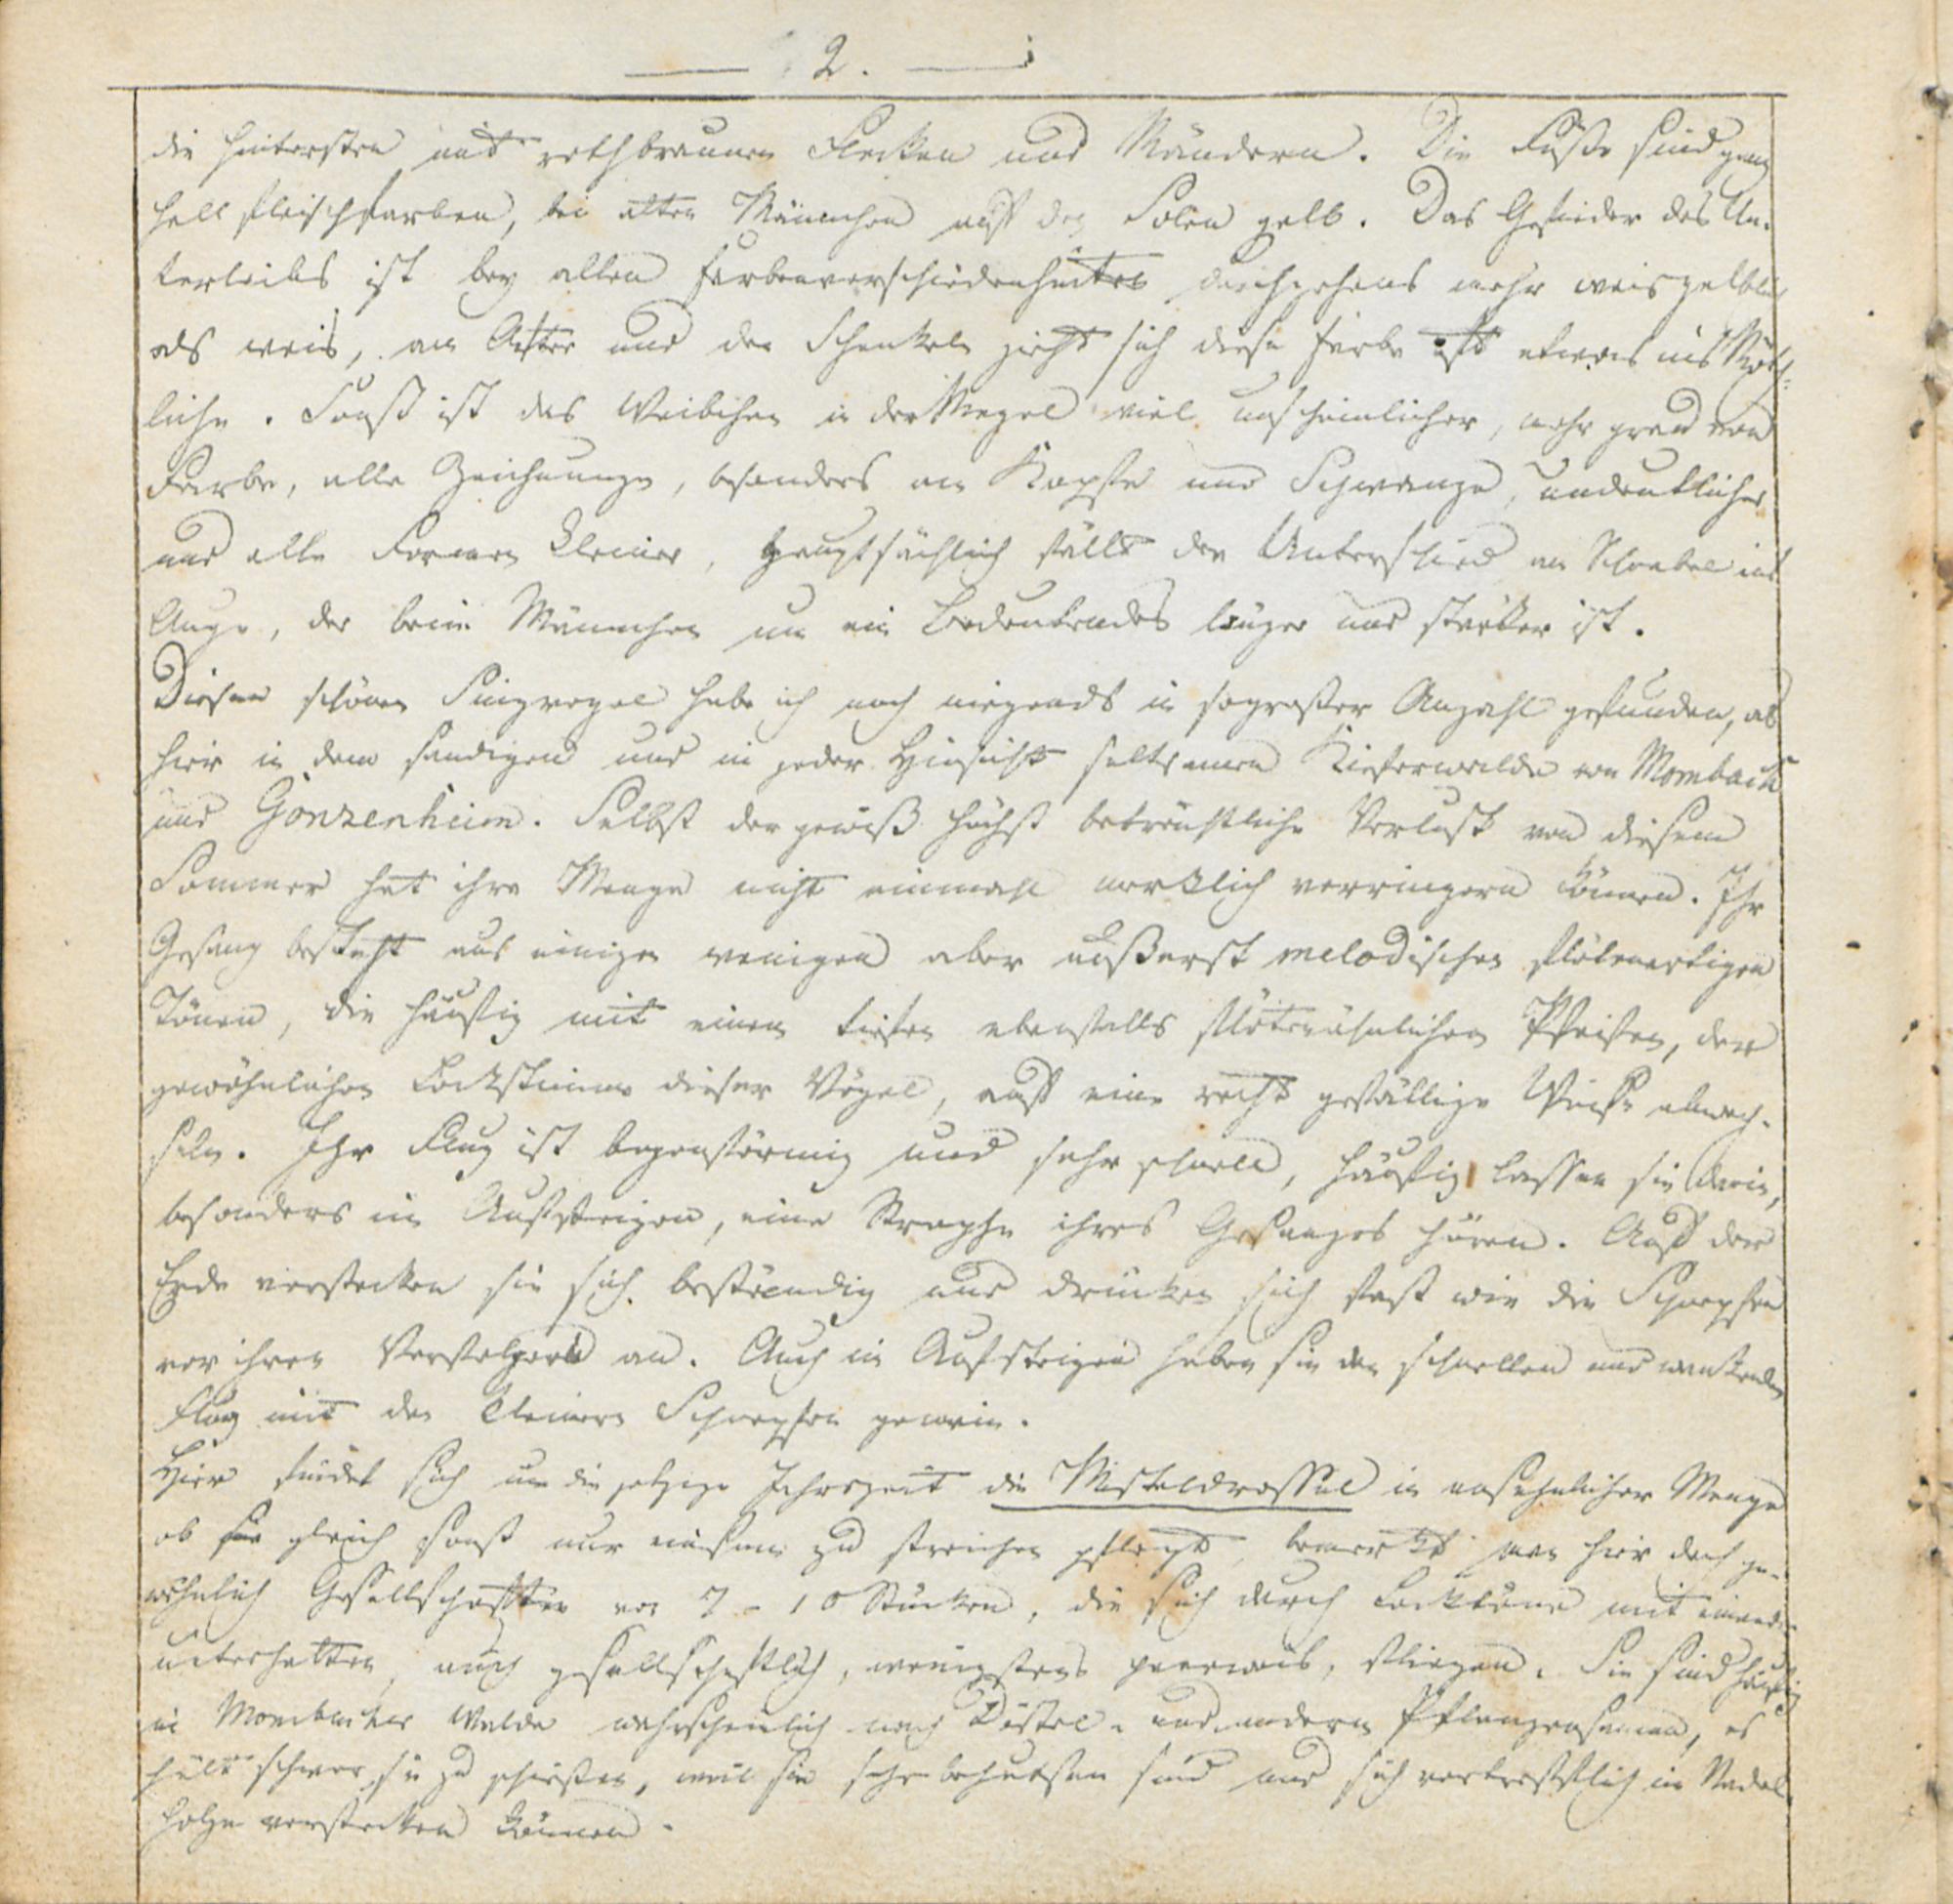 — 2. —
die hintersten mit rothbraunen Flecken und Rändern. Die Füße sind ganz
hell fleischfarben, bei alten Männchen auf den Solen gelb. Das Gefieder des Un-
terleibes ist bey allen Farbenverschiedenheiten durchgehens mehr weisgelblich
als weis, am After und den Schenkeln zieht sich diese Farbe oft etwas ins Röth-
liche. Sonst ist das Weibchen in der Regel viel unscheinlicher, mehr grau von
Farbe, alle Zeichnungen, besonders am Kopfe und Schwanze, undeutlicher
und alle Formen kleiner, hauptsächlich fällt der Unterschied am Schnabel ins
Auge, der beim Männchen um ein Bedeutendes länger und stärker ist.
Diesen schönen Singvogel habe ich noch nirgends in so großer Anzahl gefunden, als
hier in dem sandigen und in jeder Hinsicht seltsamen Kieferwalde von Mombach
und Gonzenheim. Selbst der gewiß höchst beträchtliche Verlust von diesem
Sommer hat ihre Menge nicht einmahl merklich verringern können. Ihr
Gesang besteht aus einigen wenigen aber äußerst melodischen flötenartigen
Tönen, die häufig mit einem tiefen ebenfalls flötenähnlichen Pfeifen, der
gewöhnlichen Lockstimme dieser Vögel, auf eine recht gefällige Weise abwech-
seln. Ihr Flug ist bogenförmig und sehr schnell, häufig lassen sie darin,
besonders im Aufsteigen, eine Strophe ihres Gesanges hören. Auf der
Erde verstecken sie sich beständig und drücken sich fast wie die Schnepfen
vor ihren Verfolgern an. Auch im Aufsteigen haben sie den schnellen und wankenden
Flug mit den kleinern Schnepfen gemein.
Hier findet sich um die jetzige Jahrszeit die Misteldrossel in ansehnlicher Menge
ob sie gleich sonst nur einsam zu streichen pflegt, bemerkt man hier doch ge-
wöhnlich Gesellschaften von 7 - 10 Stücken, die sich durch Locktöne mit einander
unterhalten, auch gesellschaftlich, wenigstens paarweis, fliegen. Sie sind häufig
im Mombacher Walde wahrscheinlich nach Distel- und andern Pflanzensamen, es
hält schwer sie zu schießen, weil sie sehr behutsam sind und sich vortrefflich im Nadel-
holze verstecken können.